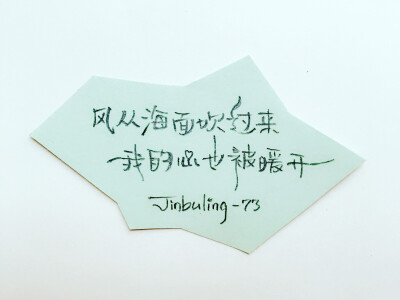 风从海面吹过来
我的心也被暖开
Jinbuling-73